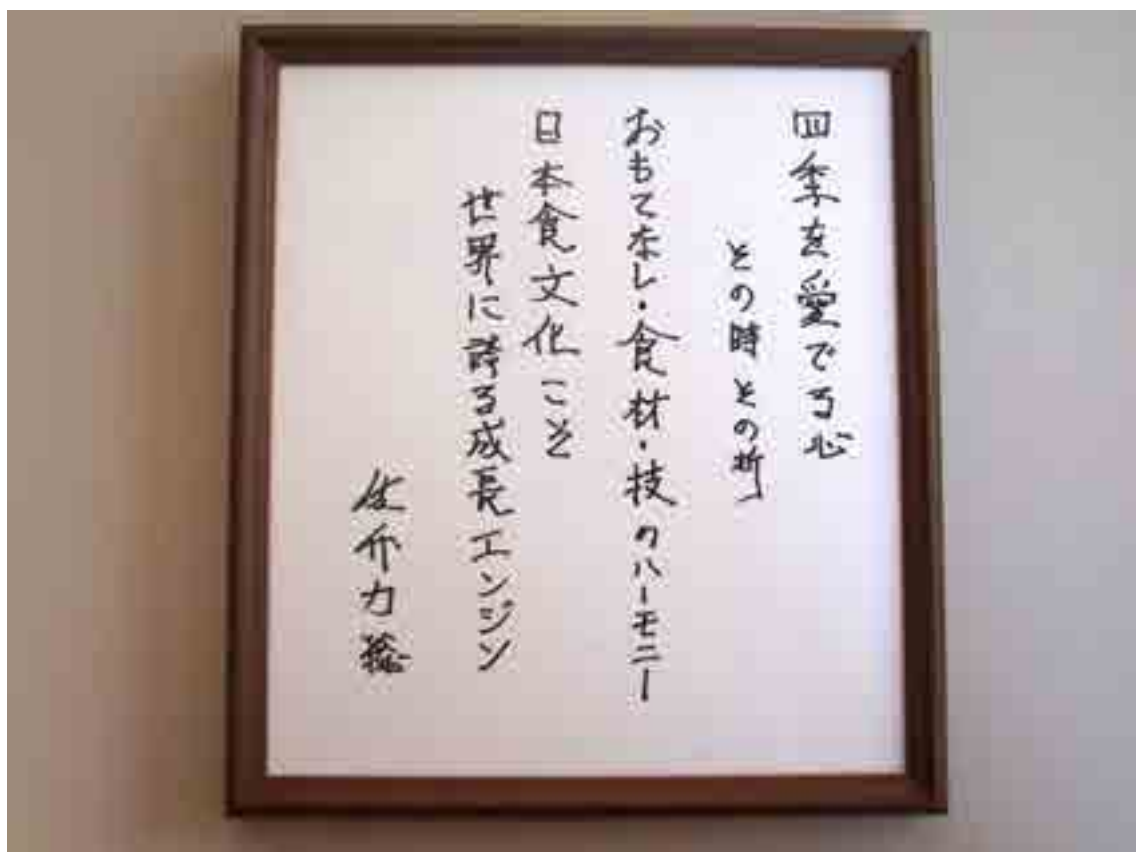 四季を愛でる心
その時その折々
おもてなし・食材・技のハーモニー
日本食文化こそ
世界に誇る成長エンジン
佐介力